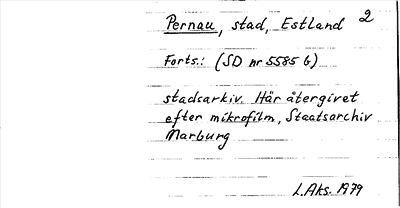 Pernau, stad, Estland 2
Forts.: (SD nr 5585 b)
stadsarkiv. Här återgivet
efter mikrofilm, Staatsarchiv
Marburg
L.Aks. 1979